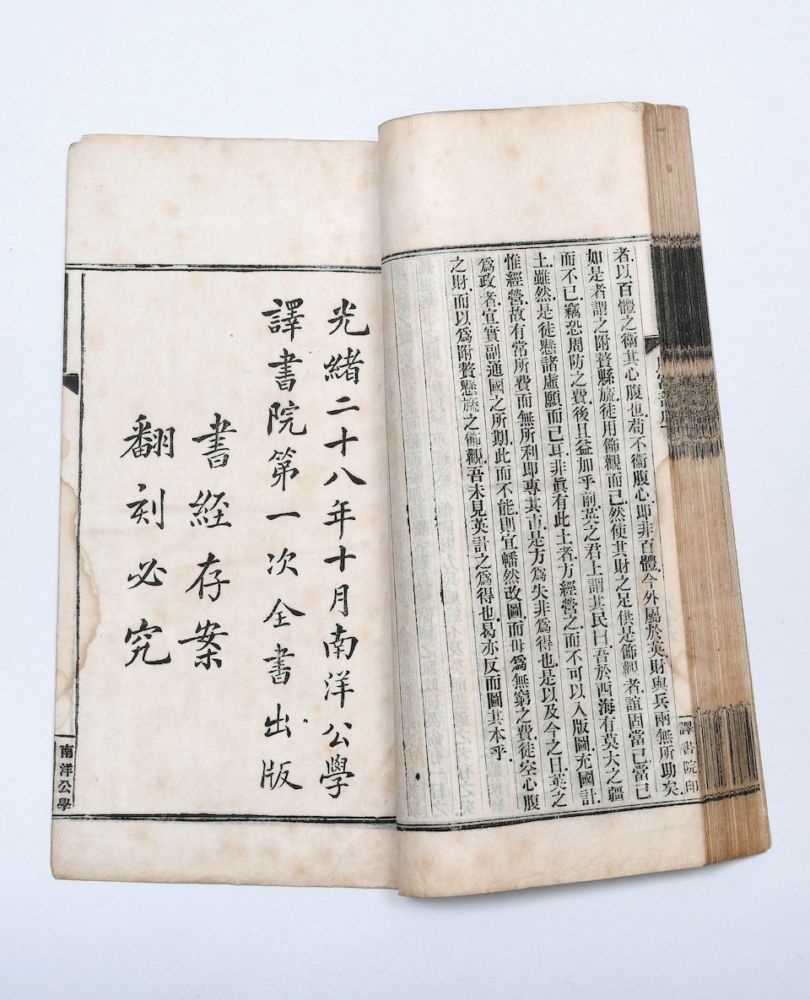 者.以百體之衞其心腹也.苟不衞腹心.即非百體.今外屬於英.財與兵兩無所助矣.
如是者.謂之附贅縣旒.徒用飾觀而已.然使其財之足供是飾觀者.誼固當已.當已
而不已.竊恐周防之費.後且益加乎前.英之君上.謂其民曰.吾於西海有莫大之疆
土.雖然.是徒懸諸虛願而已耳.非眞有此土者.方經營之.而不可以入版圖充國計.
惟經營.故有常所費而無所利.即專其市.是方爲失.非爲得也.是以及今之日.英之
爲政者.宜實副通國之所期.此而不能.則宜幡然改圖.而毋爲無窮之費.徒空心腹
之財.而以爲附贅懸旒之飾觀.吾未見英計之爲得也.曷亦反而圖其本乎.
譯書院印
光緒二十八年十月南洋公學
譯書院第一次全書出版
書經存案
翻刻必究
南洋公學